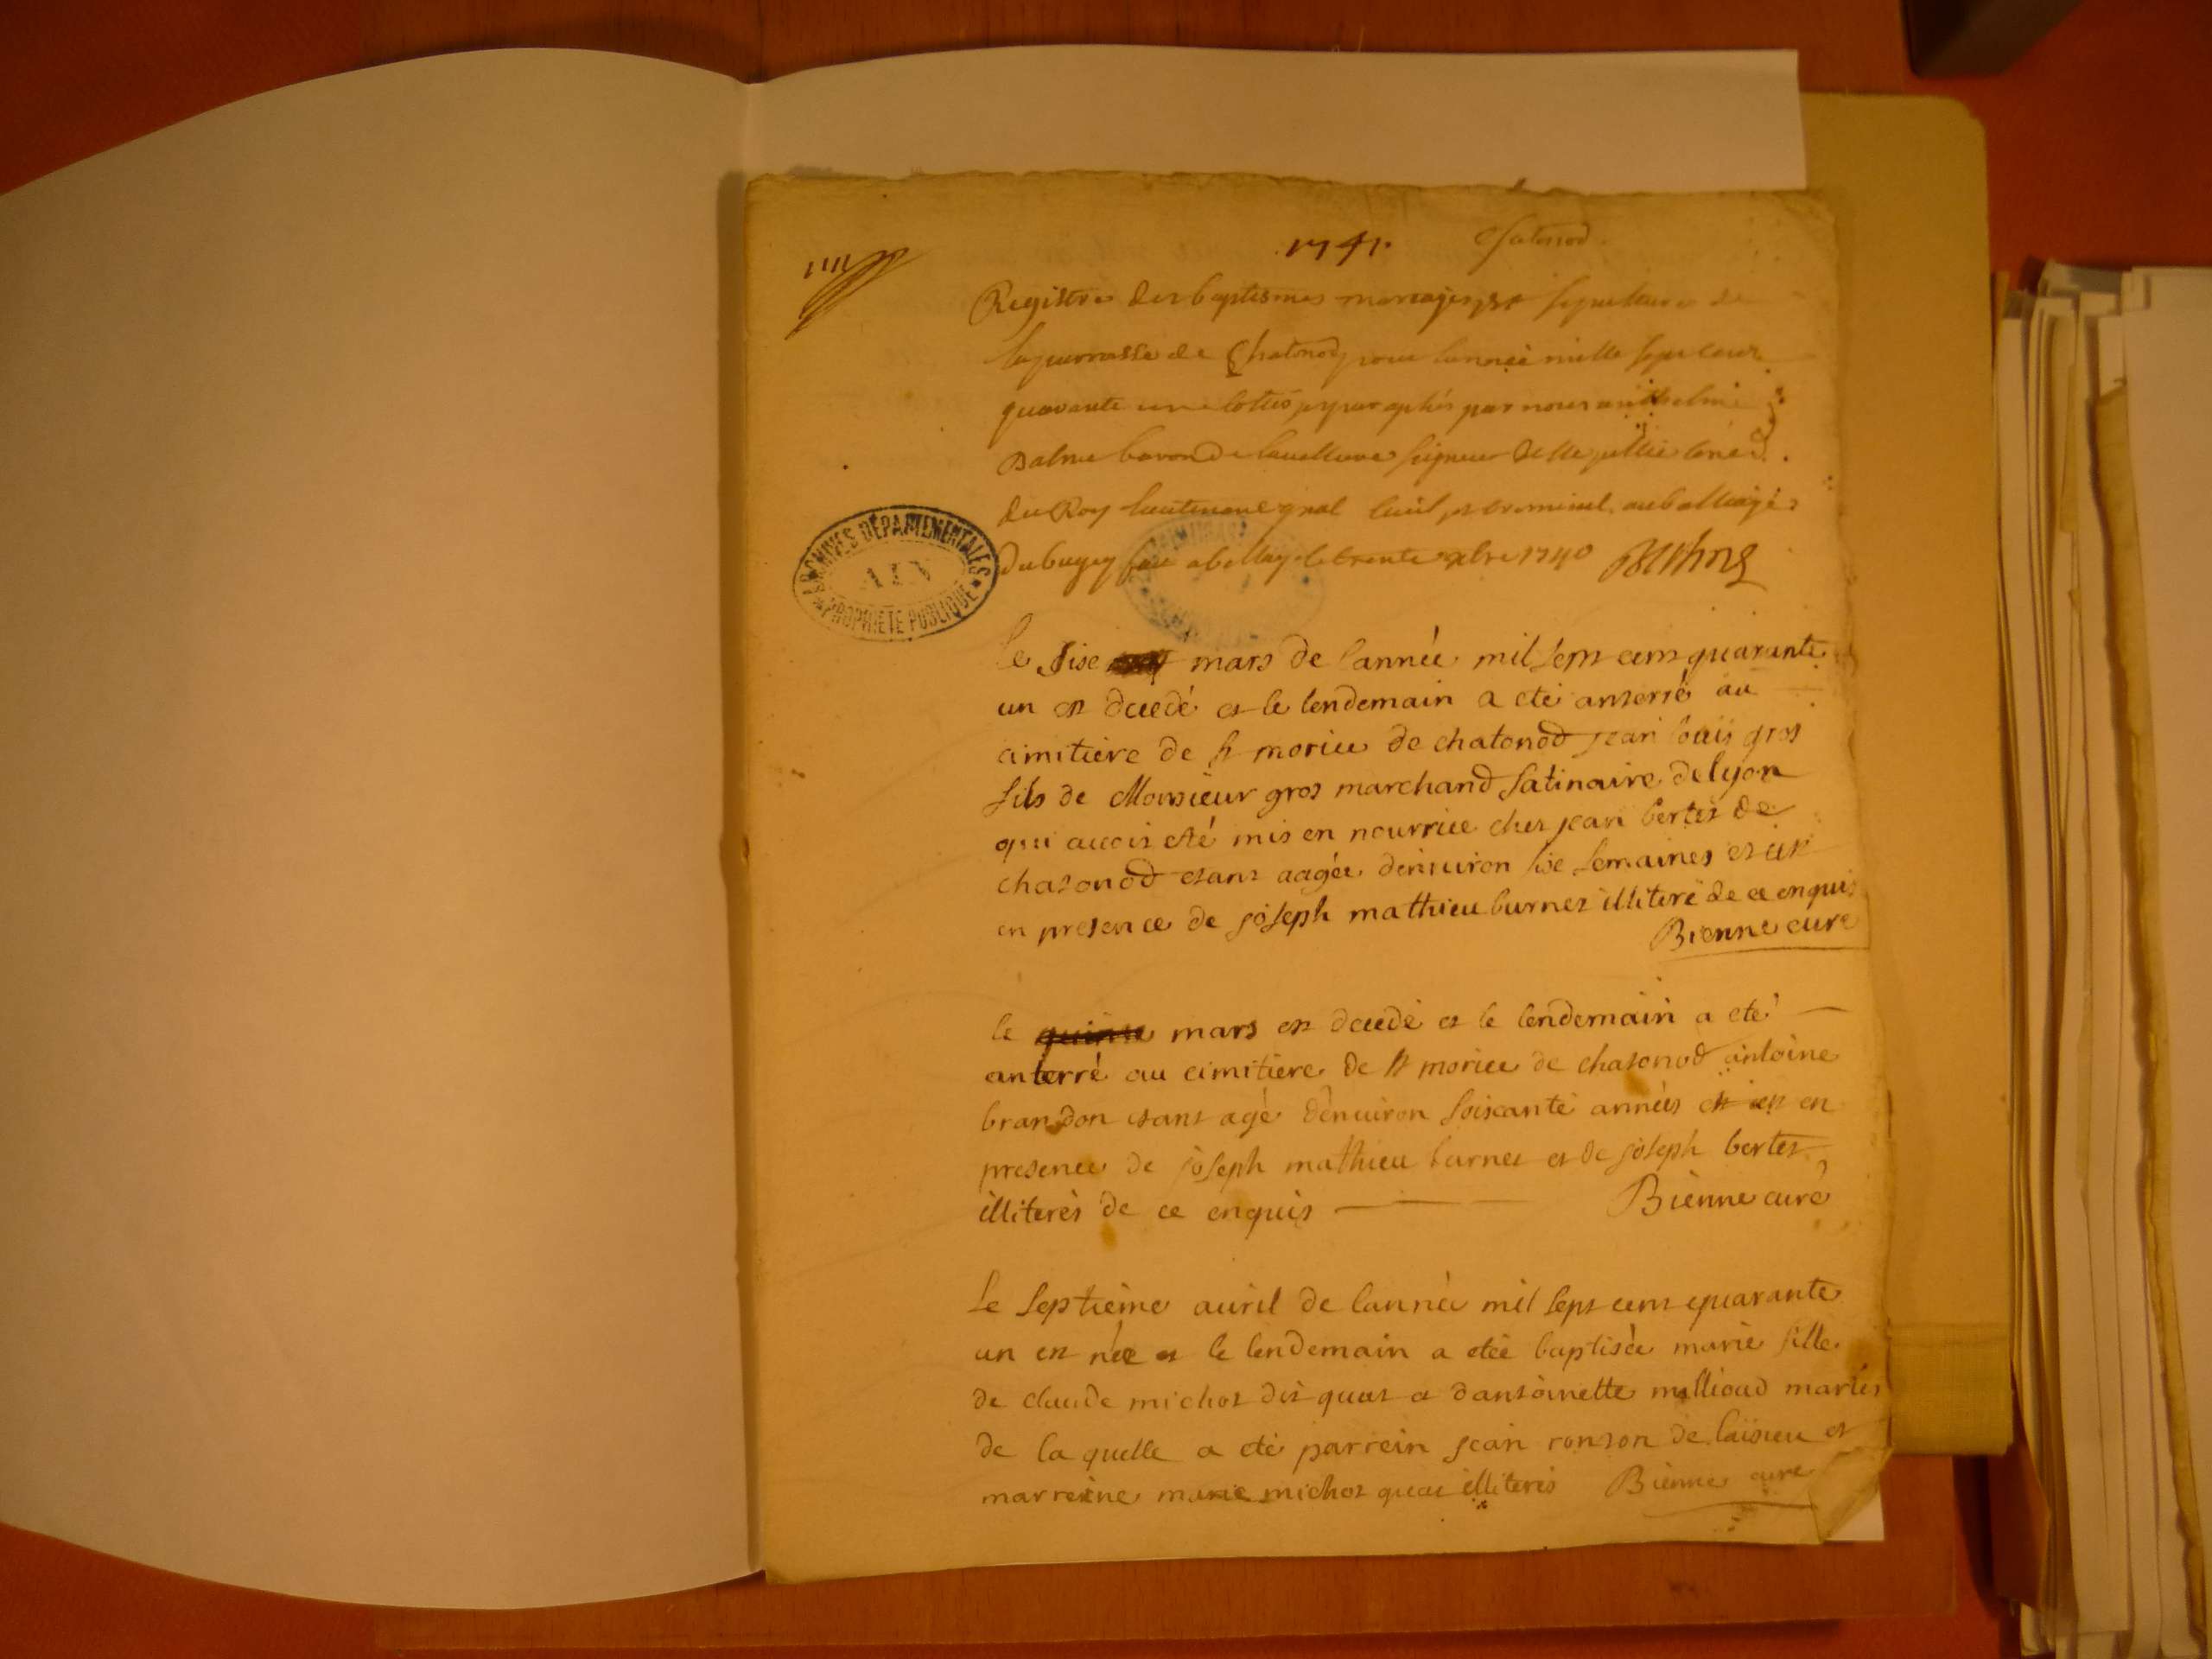 1741. Chatonod.
Registre des baptesmes mariages et sepultures de
la parroisse de Chatonod pour l'année mille sept cent
quarante un cottés et paraphés par nous
Balme baron de seigneur de
du Roy lieutenant gnal civil et criminel au balliage
du bugey fait a bellay le trente xbre 1740 Balme
ARCHIVES DÉPARTEMENTALES
AIN
PROPRIÉTÉ PUBLIQUE
Le sise mars de l'année mil sept cent quarante
un est decedé et le lendemain a eté anterré au
cimitière de st morice de chatonod jean louis gros
fils de Monsieur gros marchand satinaire de lyon
qui avoit eté mis en nourrice ches jean bertet de
chatonod etant aagée d'enuiron sise semaines et
en presence de joseph mathieu burnet illiteré de ce enquis
Bienne curé
le quinse mars est decedé et le lendemain a eté
anterré au cimitière de st morice de chatonod antoine
brandon etant agé d'enuiron soixante années en
presence de joseph mathieu burnet et de joseph bertet
illiterés de ce enquis Bienne curé
Le septième auril de l'année mil sept cent quarante
un est née et le lendemain a etée baptisée marie fille
de claude michot dit quat et d'antoinette millioud mariés
de la quelle a eté parrein jean ronson de laisieu et
marreine marie michot quat illiterés Bienne curé